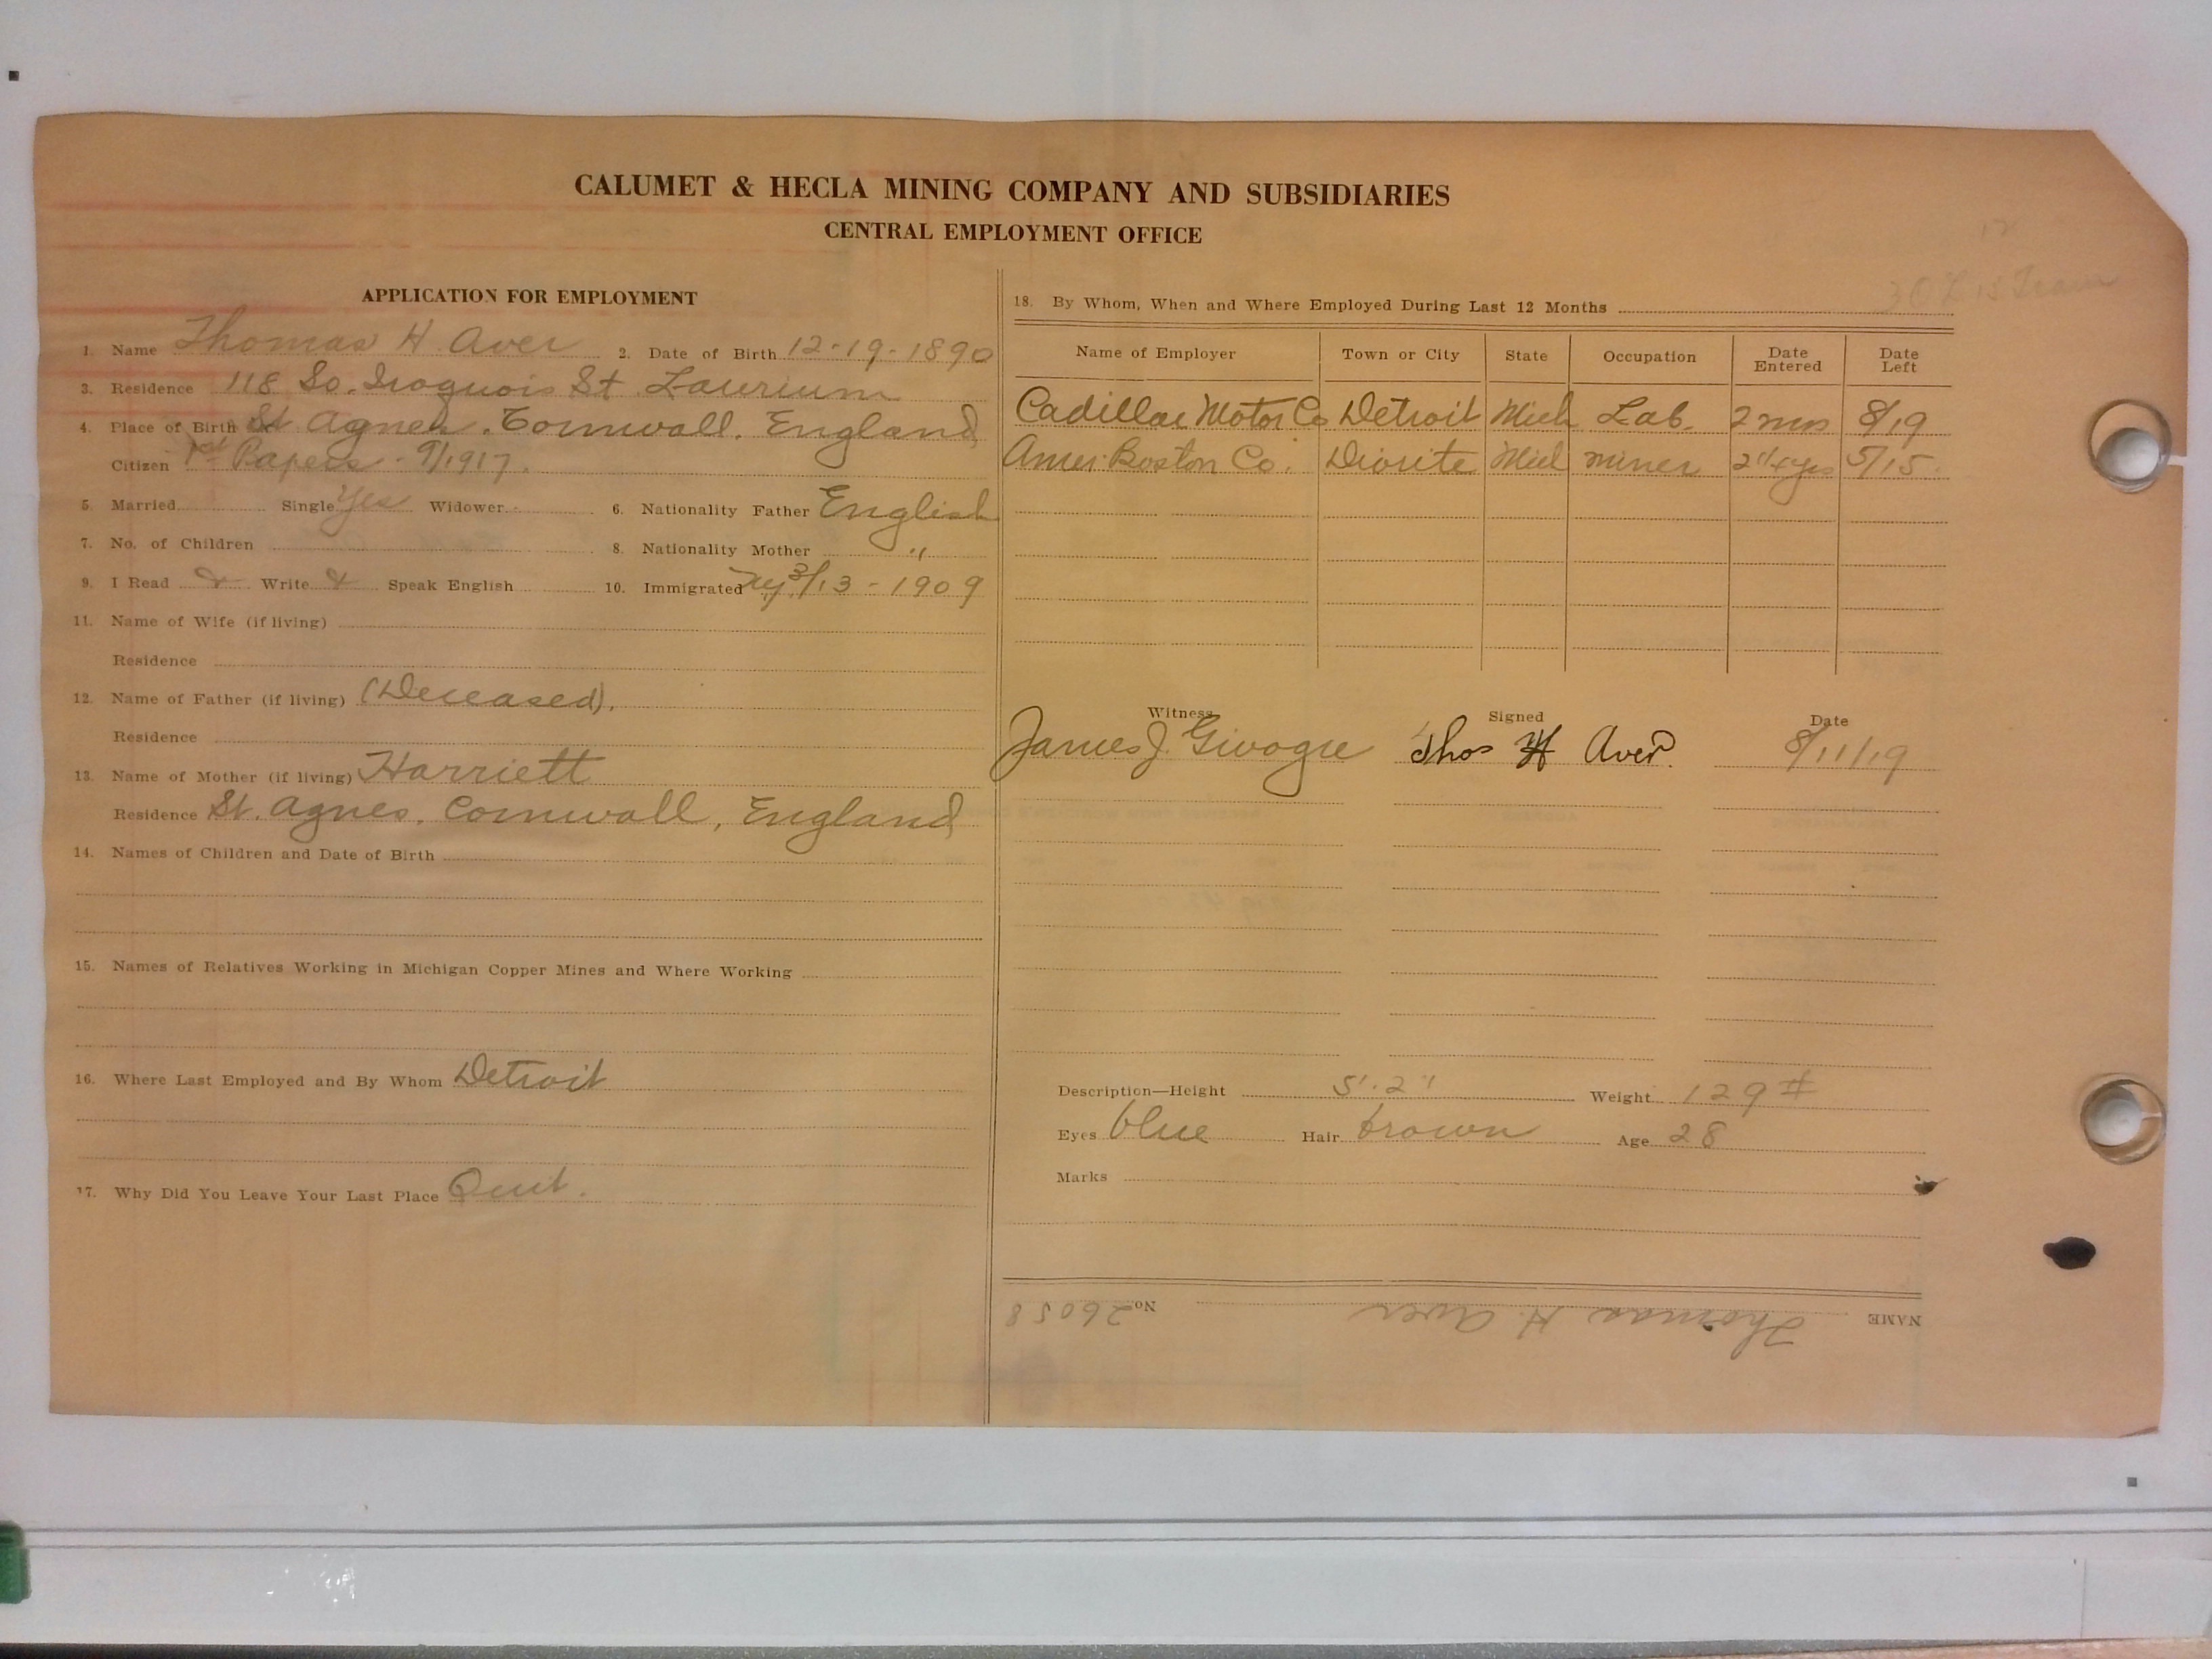 CALUMET & HECLA MINING COMPANY AND SUBSIDIARIES
CENTRAL EMPLOYMENT OFFICE
12
APPLICATION FOR EMPLOYMENT
1. Name Thomas H Aver 2. Date of Birth 12-19-1890
3. Residence 118 So. Iroquois St Laurium
4. Place of Birth St Agnes. Cornwall. England
Citizen 1st Papers - 9/1917.
5. Married Single Yes Widower 6. Nationality Father English
7. No. of Children 8. Nationality Mother "
9. I Read & Write & Speak English 10. Immigrated N.Y. 3/13-1909
11. Name of Wife (if living)
Residence
12. Name of Father (if living) (Deceased).
Residence
13. Name of Mother (if living) Harriett
Residence St. Agnes. Cornwall, England
14. Names of Children and Date of Birth
15. Names of Relatives Working in Michigan Copper Mines and Where Working
16. Where Last Employed and By Whom Detroit
17. Why Did You Leave Your Last Place Quit.
18. By Whom, When and Where Employed During Last 12 Months
Name of Employer Town or City State Occupation Date Entered Date Left
Cadillac Motor Co Detroit Mich Lab. 2 mos 8/19
Amer. Boston Co. Diorite Mich miner 5/15.
Witness Signed Date
James J. Thos H Aver. 8/11/19
Description—Height 5'.2" Weight 129 #
Eyes blue Hair brown Age 28
Marks
NAME Thomas H. Aver No. 26058